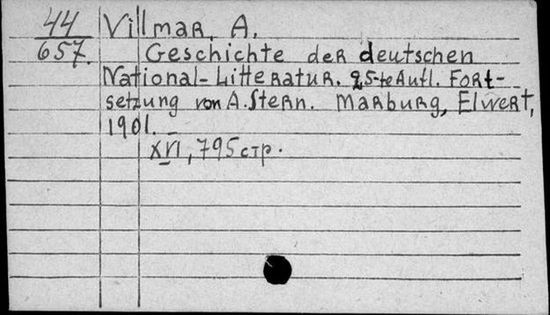 44 Villmar, A.
657. Geschichte der deutschen
National-Litteratur. 25-te Aufl. Fort-
setzung von A. Stern. Marburg, Elwert,
1901. –
XVI, 795 стр.